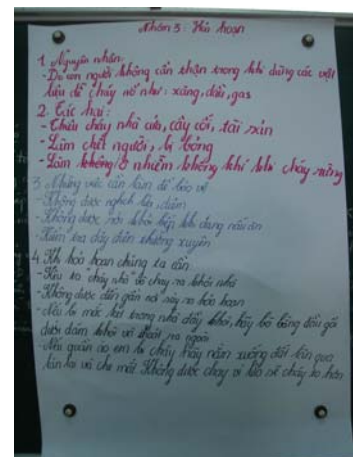 Nhóm 5: Hỏa hoạn
1. Nguyên nhân:
- Do con người không cẩn thận trong khi dùng các vật
liệu dễ cháy nổ như: xăng, dầu, gas
2. Tác hại:
- Thiêu cháy nhà cửa, cây cối, tài sản
- Làm chết người, bị bỏng
- Làm không ô nhiễm không khí khi cháy rừng
3. Những việc cần làm để bảo vệ
- Không được nghịch lửa, diêm
- Không được rời khỏi bếp khi đang nấu ăn
- Kiểm tra dây điện thường xuyên
4. Khi hoả hoạn chúng ta cần
- Kêu to "cháy nhà" và chạy ra khỏi nhà
- Không được đến gần nơi xảy ra hỏa hoạn
- Nếu bị mắc kẹt trong nhà đầy khói, hãy bò bằng đầu gối
dưới đám khói và thoát ra ngoài
- Nếu quần áo em bị cháy hãy nằm xuống đất lăn qua
lăn lại và che mặt. Không được chạy vì lửa sẽ cháy to hơn